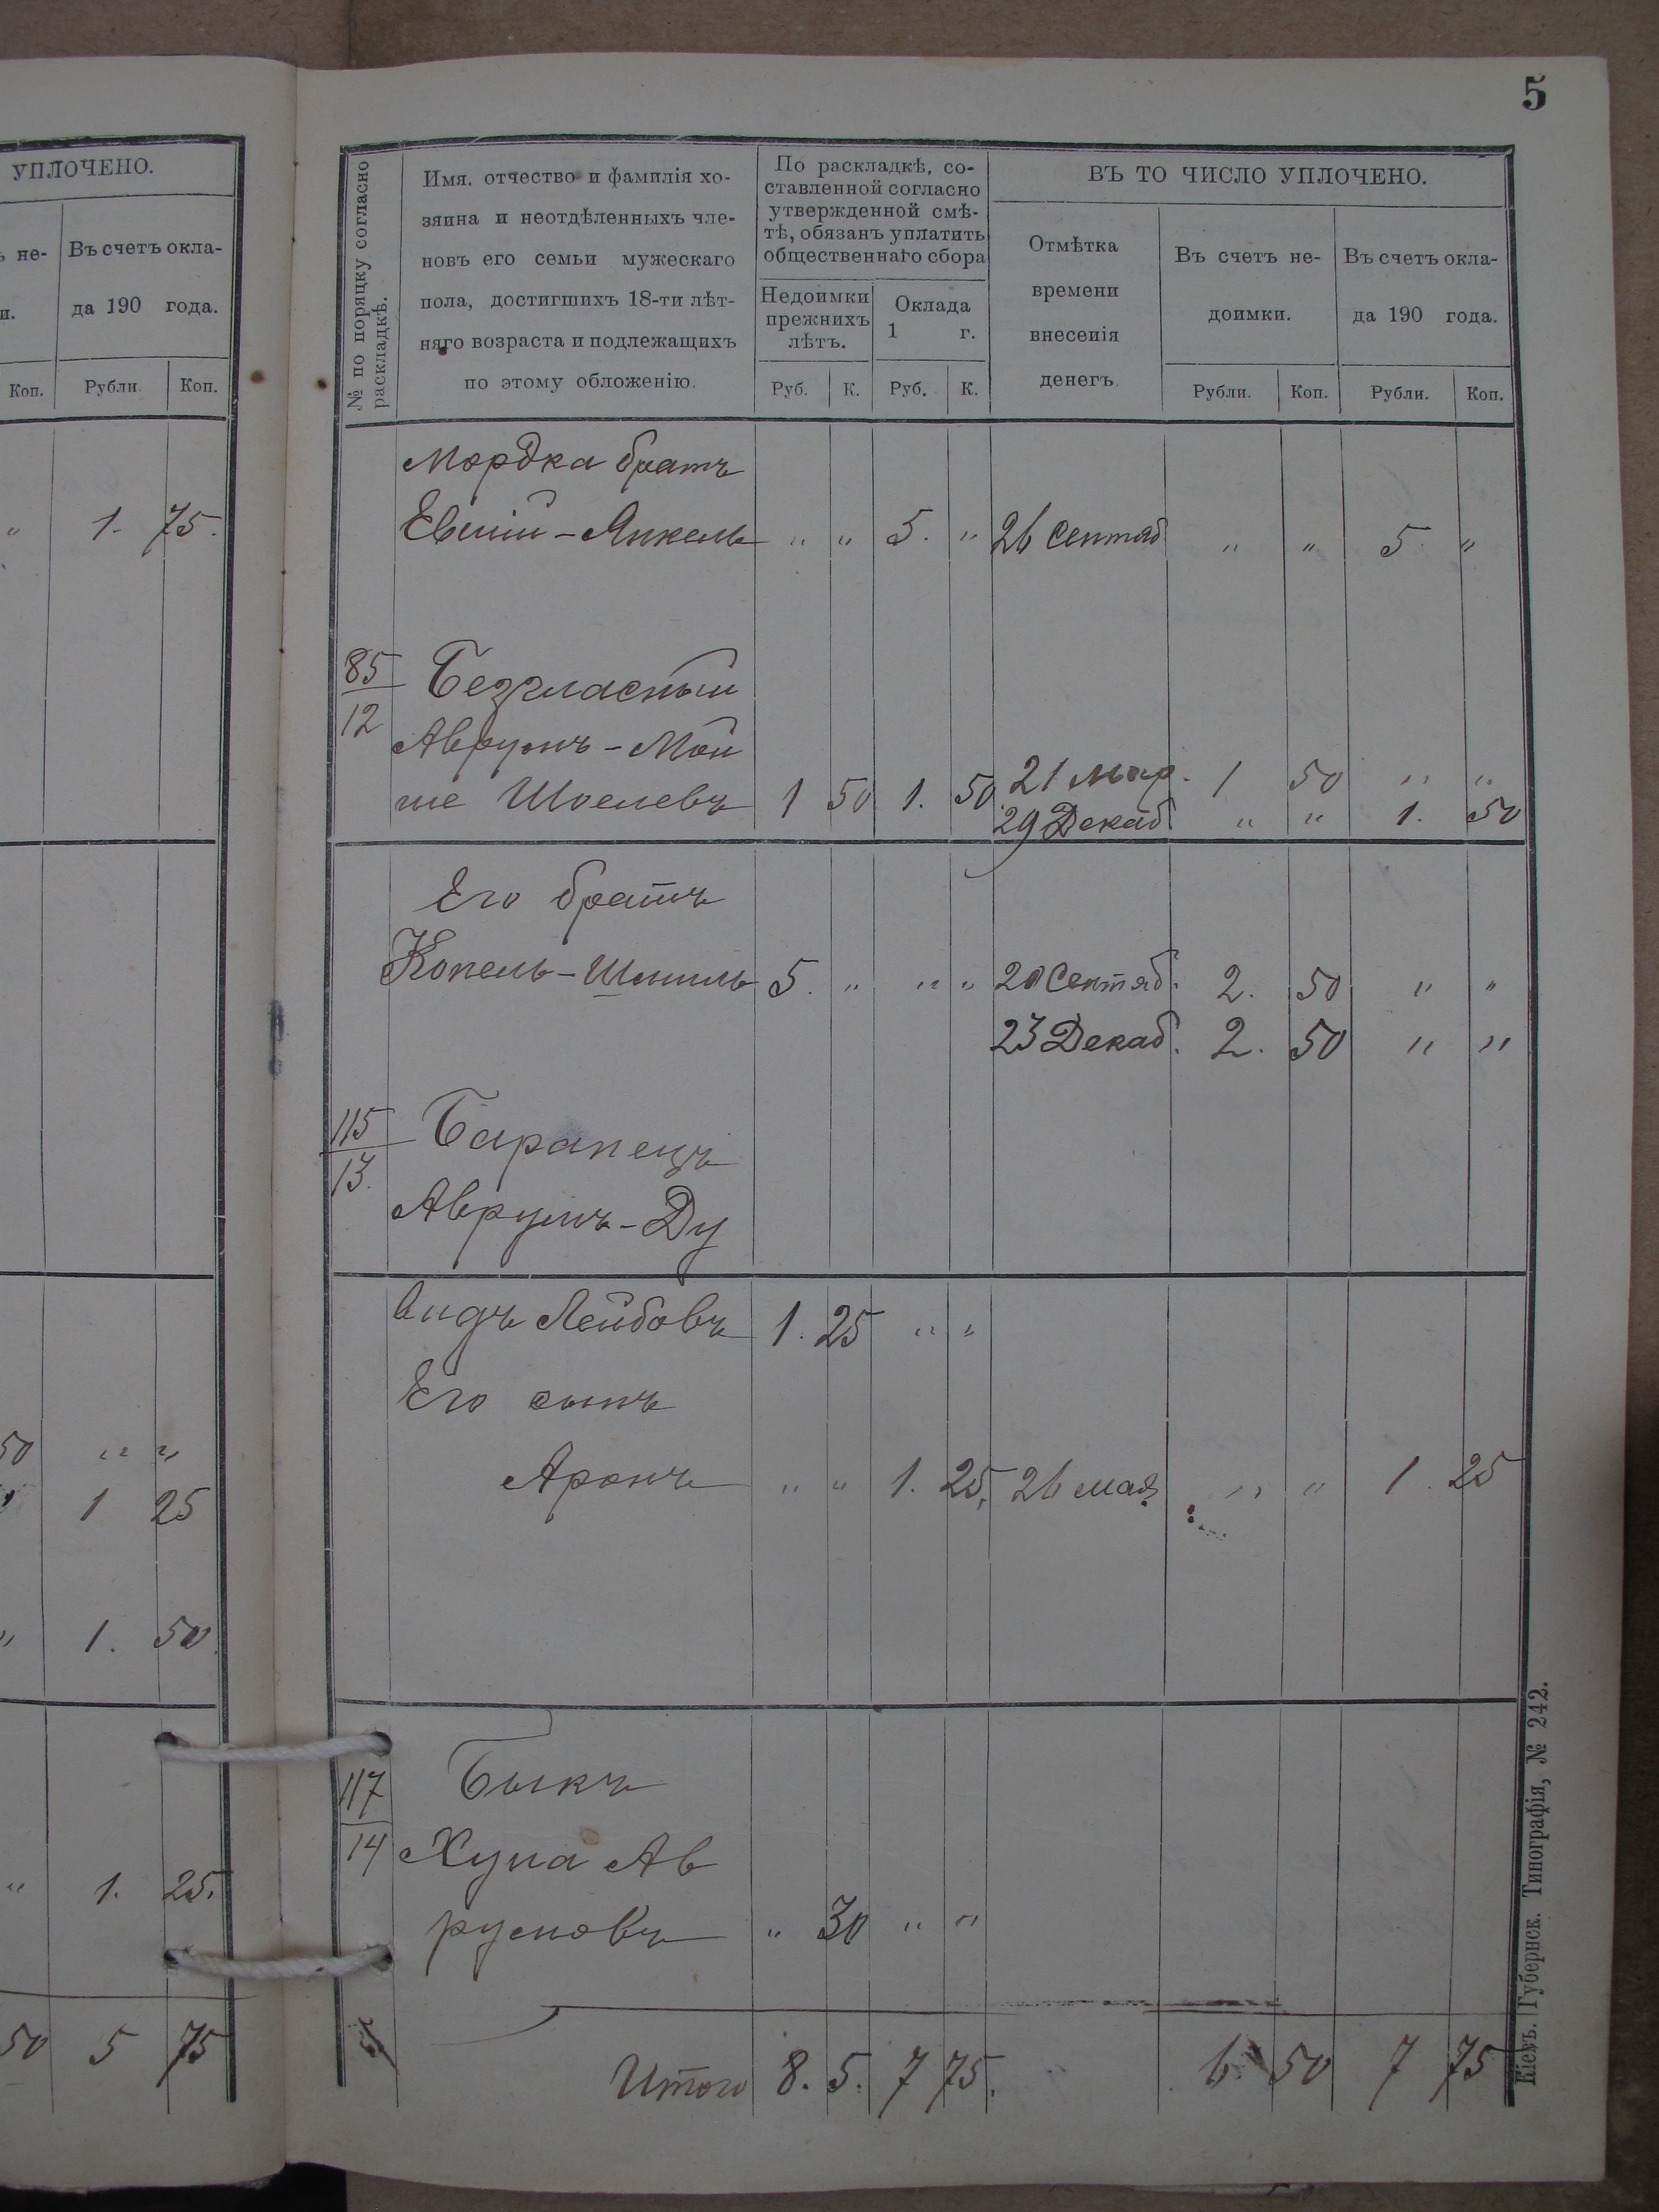 5
УПЛОЧЕНО.
ъ не-
и.
Въ счетъ окла-
да 190 года.
Коп. Рубли. Коп.
" 1. 75.
50 " "
" 1 25
" 1. 50
" 1. 25.
50 5 75
№ по поряцку согласно
раскладкѣ.
Имя. отчество и фамилія хо-
зяина и неотдѣленныхъ чле-
новъ его семьи мужескаго
пола, достигшихъ 18-ти лѣт-
няго возраста и подлежащихъ
по этому обложенію.
По раскладкѣ, со-
ставленной согласно
утвержденной смѣ-
тѣ, обязанъ уплатить
общественнаго сбора
Недоимки
прежнихъ
лѣтъ.
Оклада
1 г.
Руб. К. Руб. К.
ВЪ ТО ЧИСЛО УПЛОЧЕНО.
Отмѣтка
времени
внесенія
денегъ.
Въ счетъ не-
доимки.
Въ счетъ окла-
да 190 года.
Рубли. Коп. Рубли. Коп.
Мордка братъ
Янкель " " 5. " 26 Сентяб " " 5 "
85 Безгласный
12
Аврумъ-Мой
ше Шоелевъ 1 50 1. 50 21 Мар. 1 50 " "
29 Декаб. " " 1. 50
Его братъ
Копель-Шмиль 5. " " " 20 Сентяб. 2. 50 " "
23 Декаб. 2. 50 " "
115 Баранецъ
13.
Аврумъ-Ду
видъ Лейбовъ 1. 25 " "
Его сынъ
Аронъ " " 1. 25. 26 мая " " 1. 25
117 Быкъ
14 Хуна Ав
румовъ " 30 " "
Итого 8. 5. 7 75. 6. 50 7 75
Кіевъ. Губернск. Типографія, № 242.